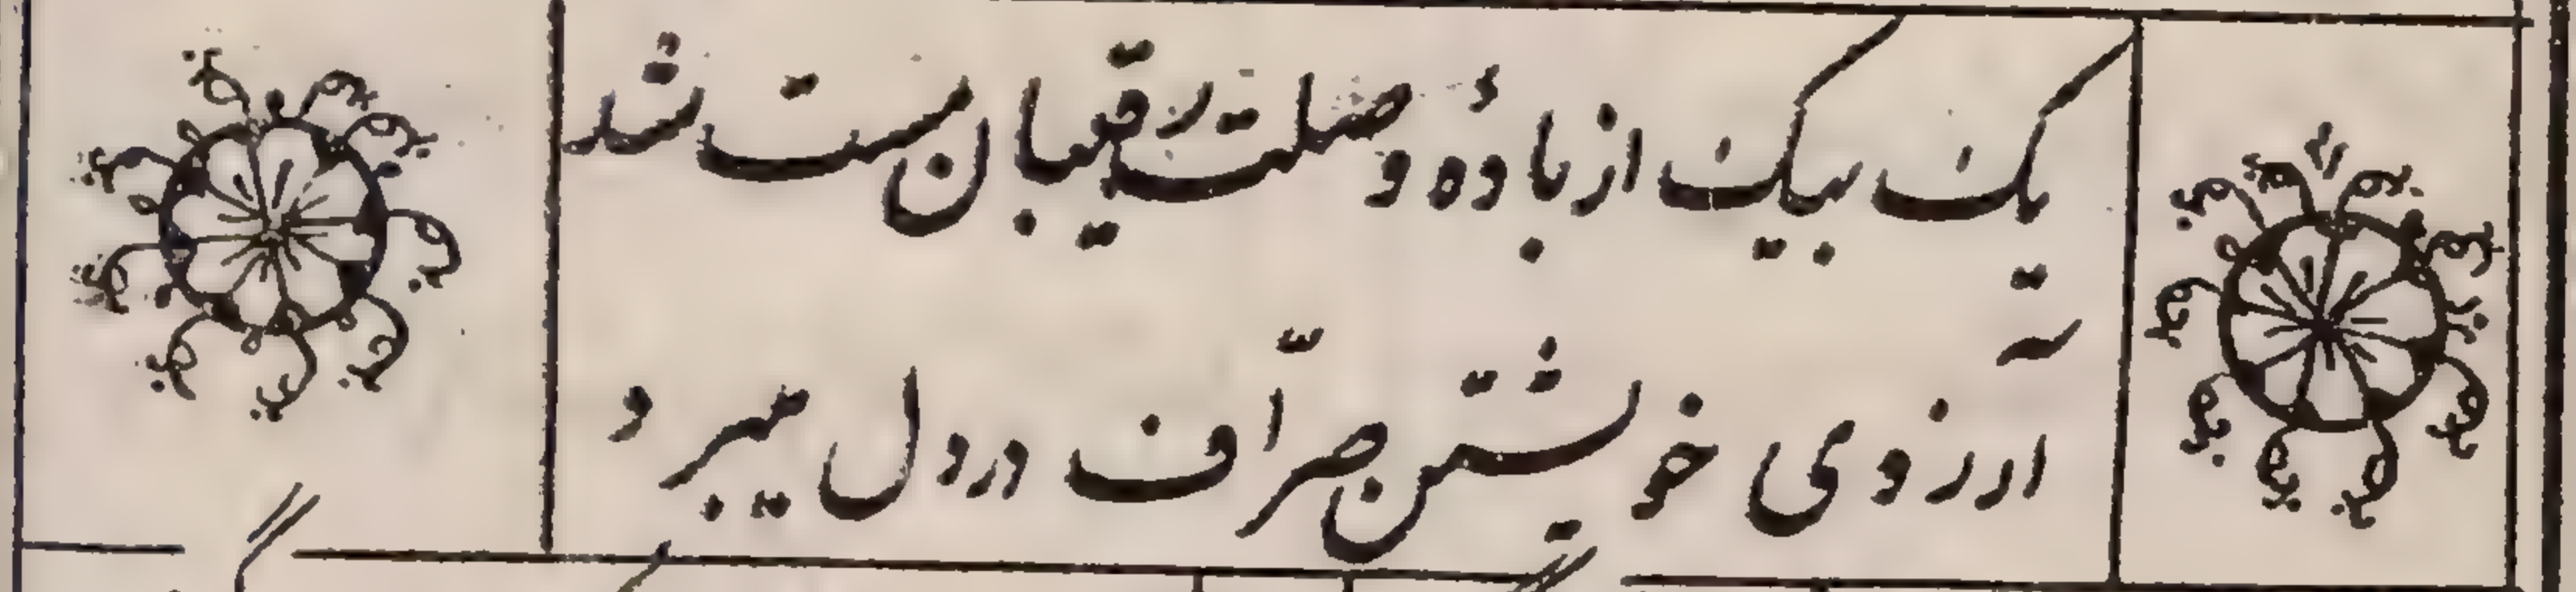 یک بیک از بادهٔ وصلت رقیبان مست شد
آرزوی خویشتن صرّاف در دل میبرد